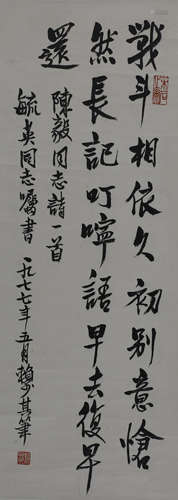 戰斗相依久初别意愴
然長記叮嚀語早去復早
還
陳毅同志詩一首
毓英同志囑書
一九七七年五月賴少其筆